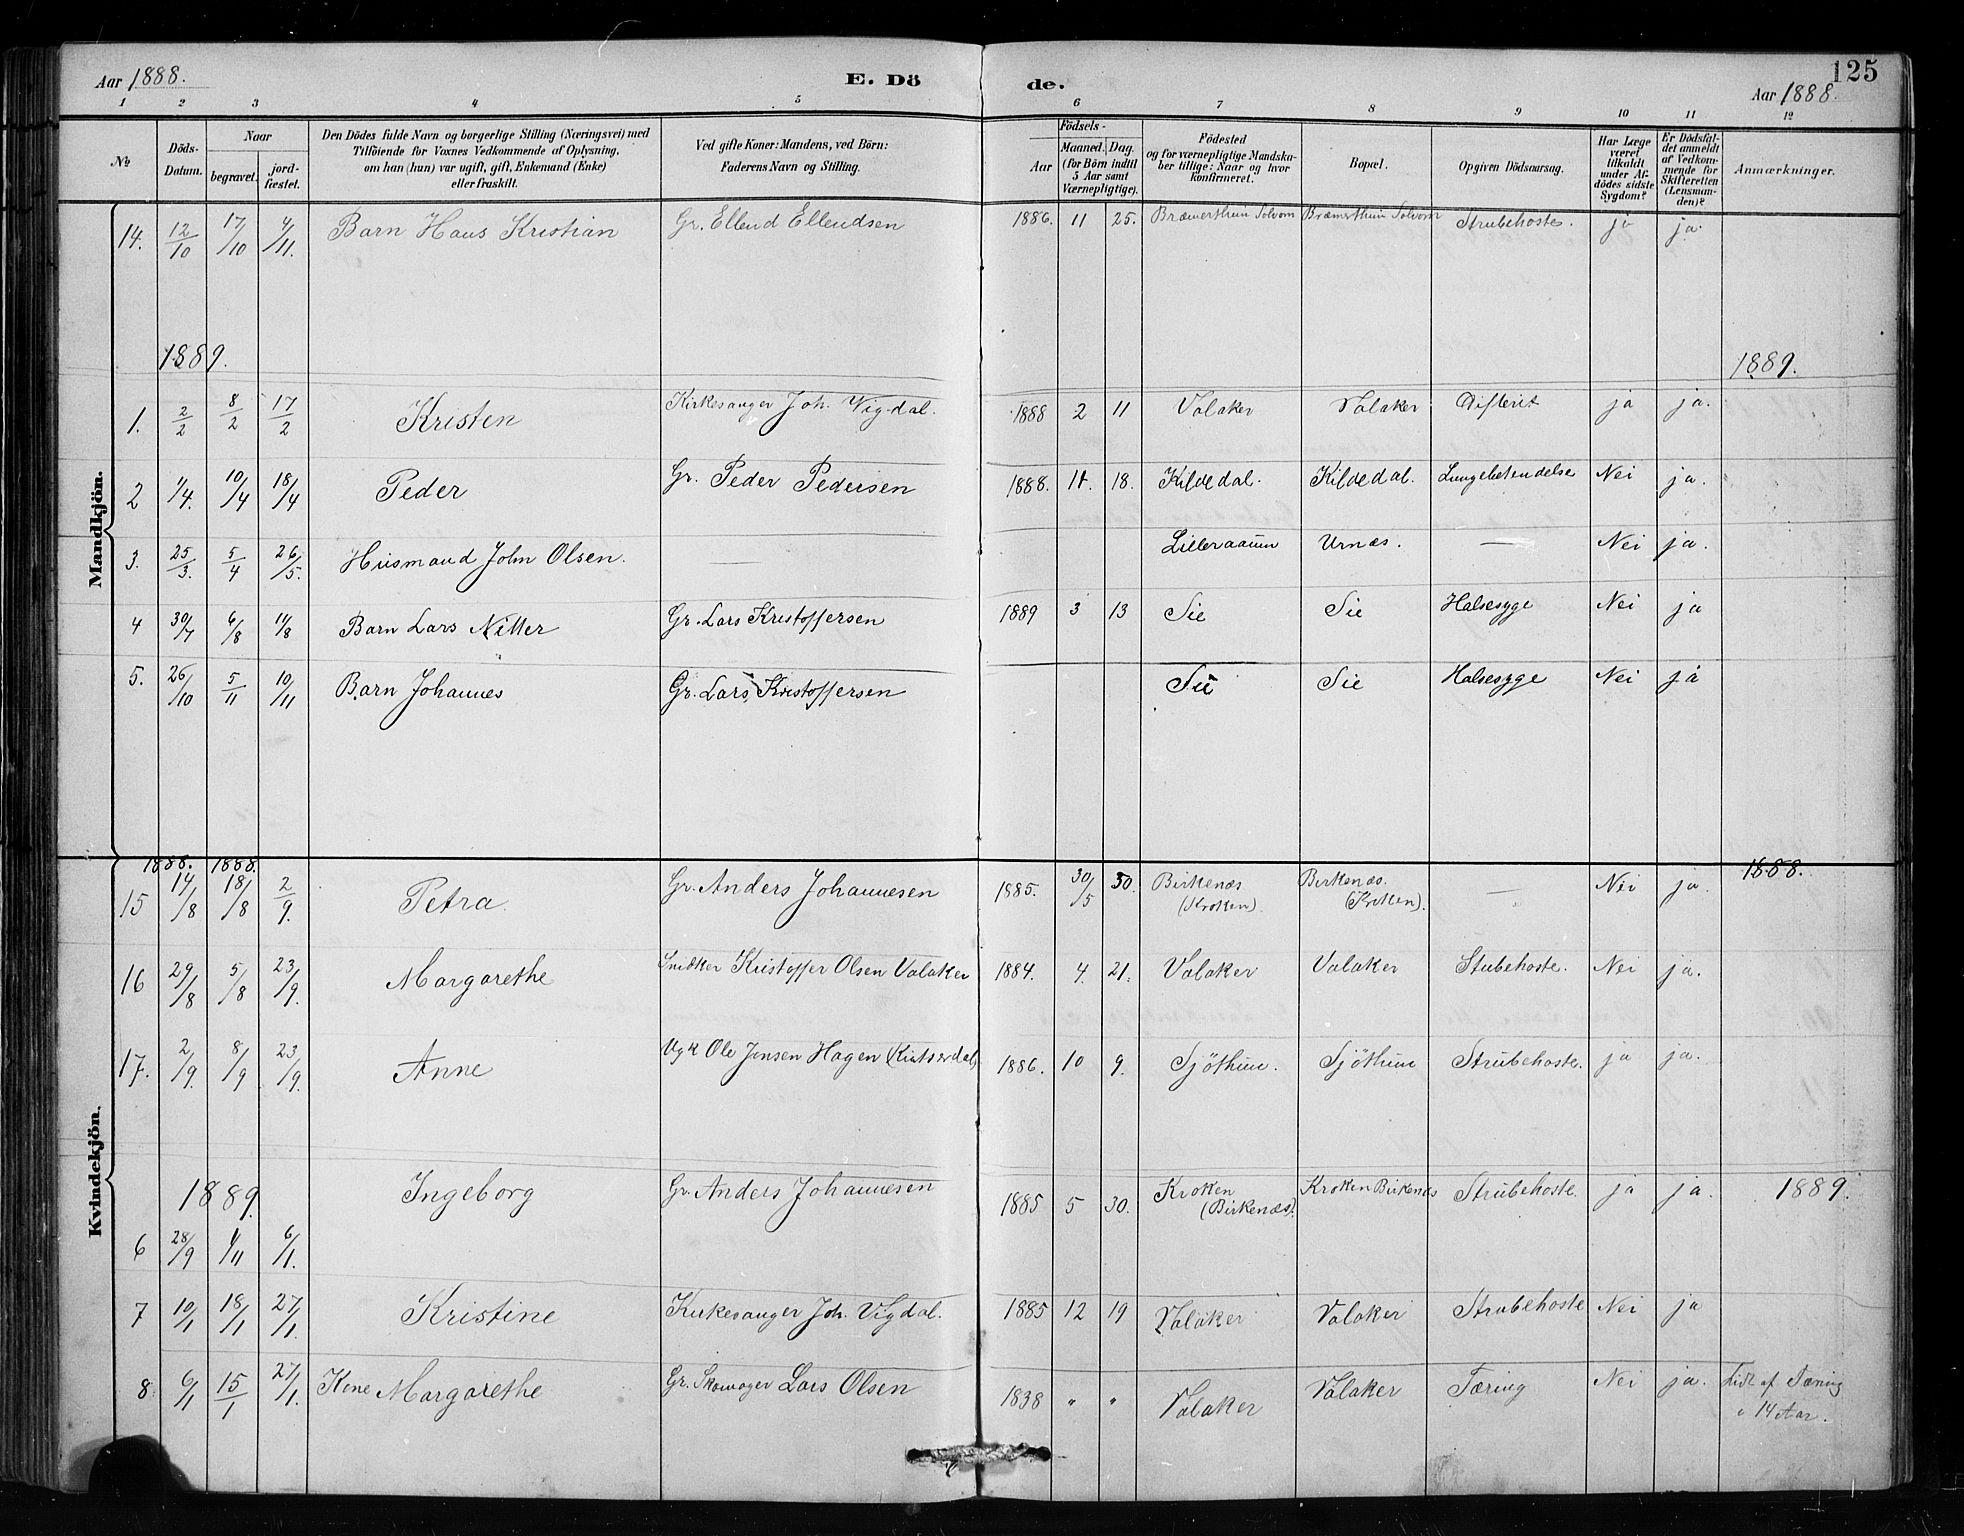 Aar 1888. E. Dö de. 125
Aar 1888.
1 2 3 4 5 6 7 8 9 10 11 12
№
Döds-Datum.
Naar
begravet.
jord-fæstet.
Den Dödes fulde Navn og borgerlige Stilling (Næringsvei) med
Tilföiende for Voxnes Vedkommende af Oplysning,
om han (hun) var ugift, gift, Enkemand (Enke)
eller fraskilt.
Ved gifte Koner: Mandens, ved Börn:
Faderens Navn og Stilling.
Födsels-
Aar
Maaned. Dag.
(for Börn indtil
5 Aar samt
Værnepligtige).
Födested
og for værnepligtige Mandska-
ber tillige: Naar og hvor
konfirmeret.
Bopæl.
Opgiven Dödsaarsag.
Har Læge
været
tilkaldt
under Af-
dödes sidste
Sygdom?
Er Dödsfal-
det anmeldt
af Vedkom-
mende for
Skifteretten
(Lensman-
den)?
Anmærkninger.
Mandkjön.
14. 12/10 17/10 4/11. Barn Hans Kristian Gr. Ellend Ellendsen 1886. 11 25. Bræmerthun Solvorn Bræmerthun Solvorn Strubehoste. ja ja.
1889. 1889.
1. 2/2 8/2 17/2 Kristen Kirkesanger Joh. Vigdal. 1888 2 11 Valaker Valaker Difterit ja ja.
2 1/4. 10/4 18/4 Peder Gr. Peder Pedersen 1888. 11. 18. Kildedal. Kildedal. Lungebetendelse Nei ja.
3. 25/3. 5/4 26/5. Husmand John Olsen. — Lilleraaum Urnæs. — Nei ja.
4 30/7 6/8 11/8 Barn Lars Nitter Gr. Lars Kristoffersen 1889 3 13 Sie Sie Halsesyge Nei ja
5. 26/10 5/11 10/11 Barn Johannes Gr. Lars Kristoffersen Sie Sie Halsesyge Nei ja
Kvindekjön.
1888. 1888. 1888.
15 14/8 18/8 2/9. Petra Gr. Anders Johannesen 1885. 30/5 30. Birkenæs (Kroken). Birkenæs. (Kroken). — Nei ja.
16 29/8 5/8 23/9. Margarethe Snedker Kristoffer Olsen Valaker 1884. 4. 21. Valaker Valaker Stubehoste. Nei ja.
17. 2/9. 8/9 23/9. Anne Ole Jensen Hagen 1886. 10 9. Sjöthun. Sjöthun Strubehoste. ja ja.
1889. Ingeborg Gr. Anders Johannesen 1885 5 30. Kroken (Birkenæs). Kroken Birkenæs Strubehoste. ja ja. 1889.
6 28/9 1/11 6/1.
7 10/1 18/1 27/1. Kristine Kirkesanger Joh. Vigdal. 1885 12 19 Valaker Valaker Strubehoste Nei ja
8 6/1 15/1 27/1. Kone Margarethe Gr. Skomager Lars Olsen 1838 " " Valaker Valaker Tæring Nei ja. Lidt af Tæring
i 14 Aar.